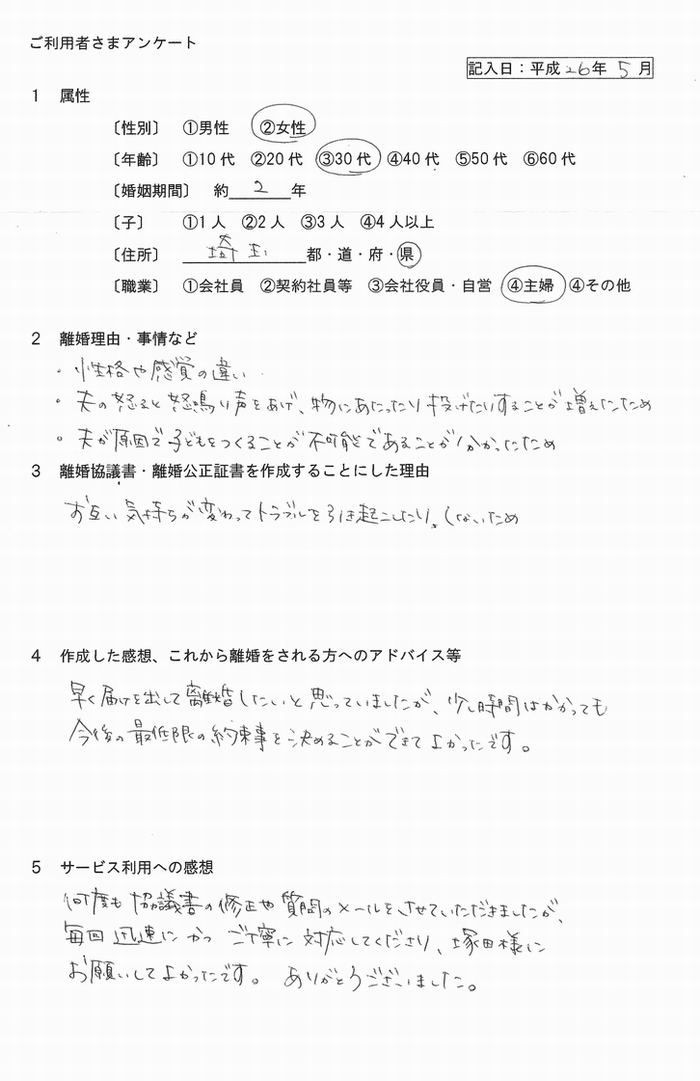 ご利用者さまアンケート
記入日：平成26年 5月
1 属性
〔性別〕 ①男性 ②女性
〔年齢〕 ①10代 ②20代 ③30代 ④40代 ⑤50代 ⑥60代
〔婚姻期間〕 約 2 年
〔子〕 ①1人 ②2人 ③3人 ④4人以上
〔住所〕 埼玉 都・道・府・県
〔職業〕 ①会社員 ②契約社員等 ③会社役員・自営 ④主婦 ④その他
2 離婚理由・事情など
・性格や感覚の違い
・夫の怒ると怒鳴り声をあげ、物にあたったり投げたりすることが増えたため
・夫が原因で子どもをつくることが不可能であることが分かったため
3 離婚協議書・離婚公正証書を作成することにした理由
お互い気持ちが変わってトラブルを引き起こしたりしないため
4 作成した感想、これから離婚をされる方へのアドバイス等
早く届けを出して離婚したいと思っていましたが、少し時間はかかっても
今後の最低限の約束事を決めることができてよかったです。
5 サービス利用への感想
何度も協議書の修正や質問のメールをさせていただきましたが、
毎回迅速にかつご丁寧に対応してくださり、塚田様に
お願いしてよかったです。 ありがとうございました。